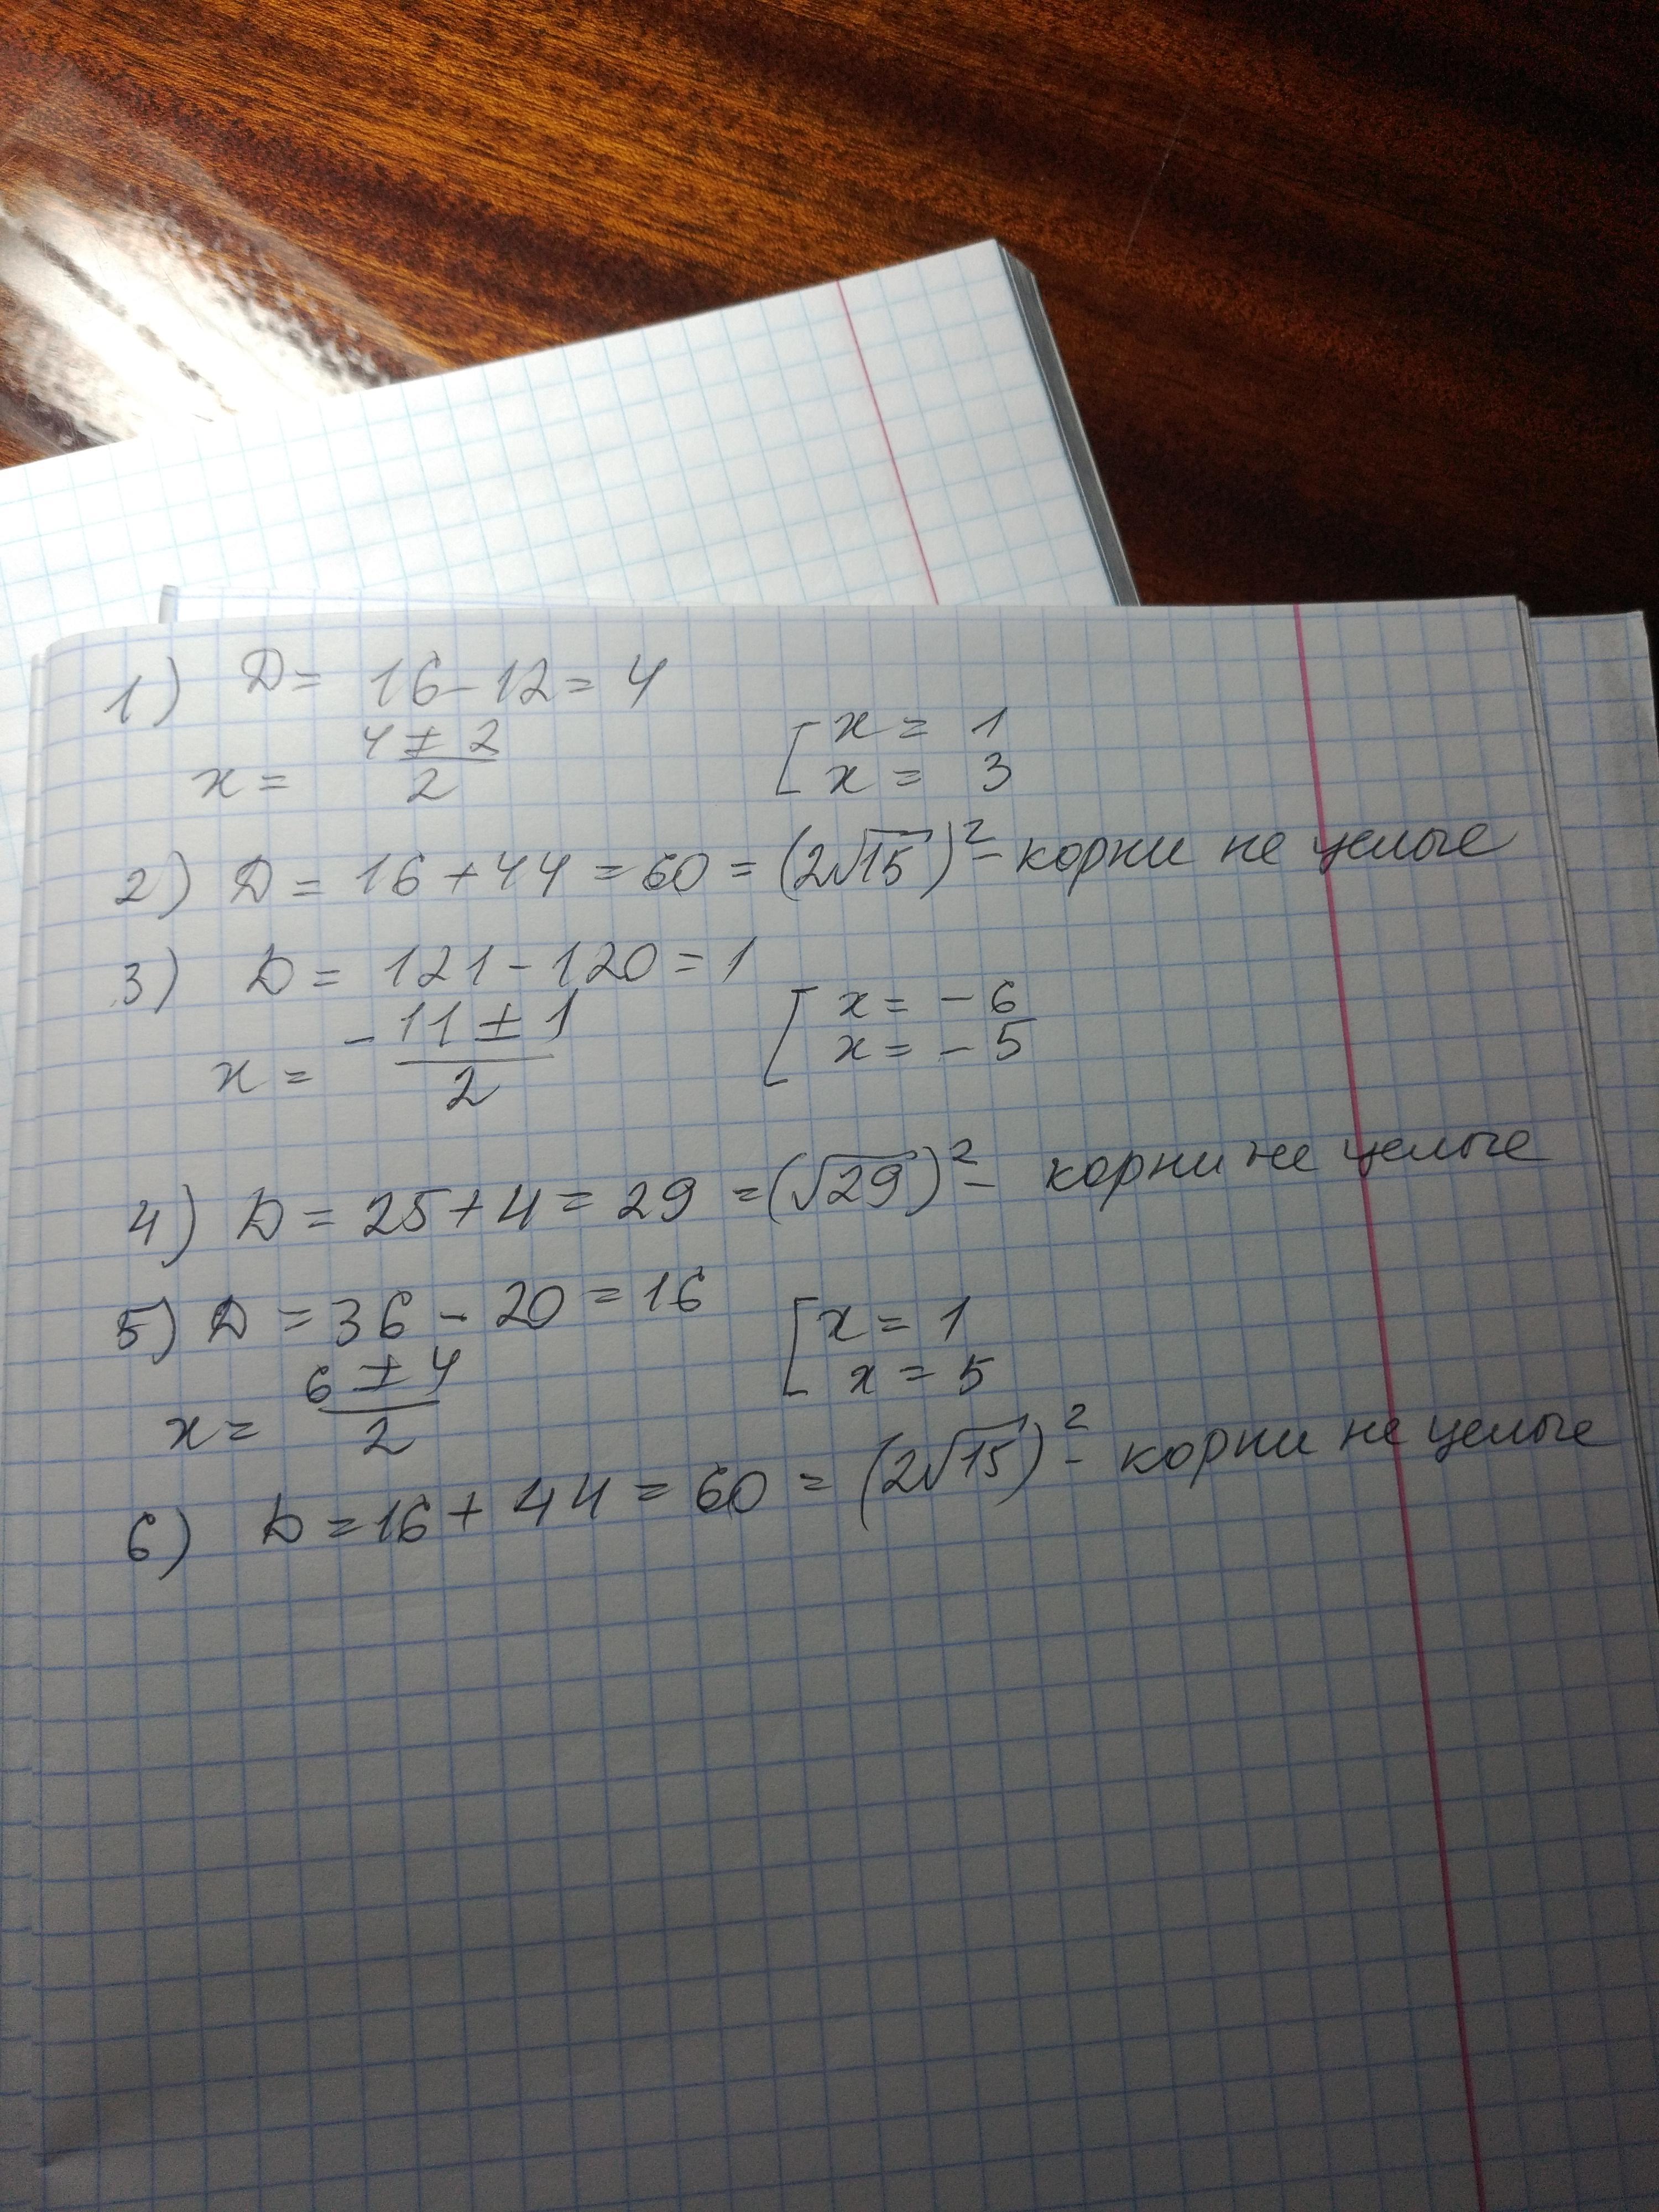 1) D = 16 - 12 = 4
x = (4 ± 2)/2 [ x = 1
x = 3
2) D = 16 + 44 = 60 = (2√15)² - корни не целые
3) D = 121 - 120 = 1
x = (-11 ± 1)/2 [ x = -6
x = -5
4) D = 25 + 4 = 29 = (√29)² - корни не целые
5) D = 36 - 20 = 16 [ x = 1
x = (6 ± 4)/2 x = 5
6) D = 16 + 44 = 60 = (2√15)² - корни не целые